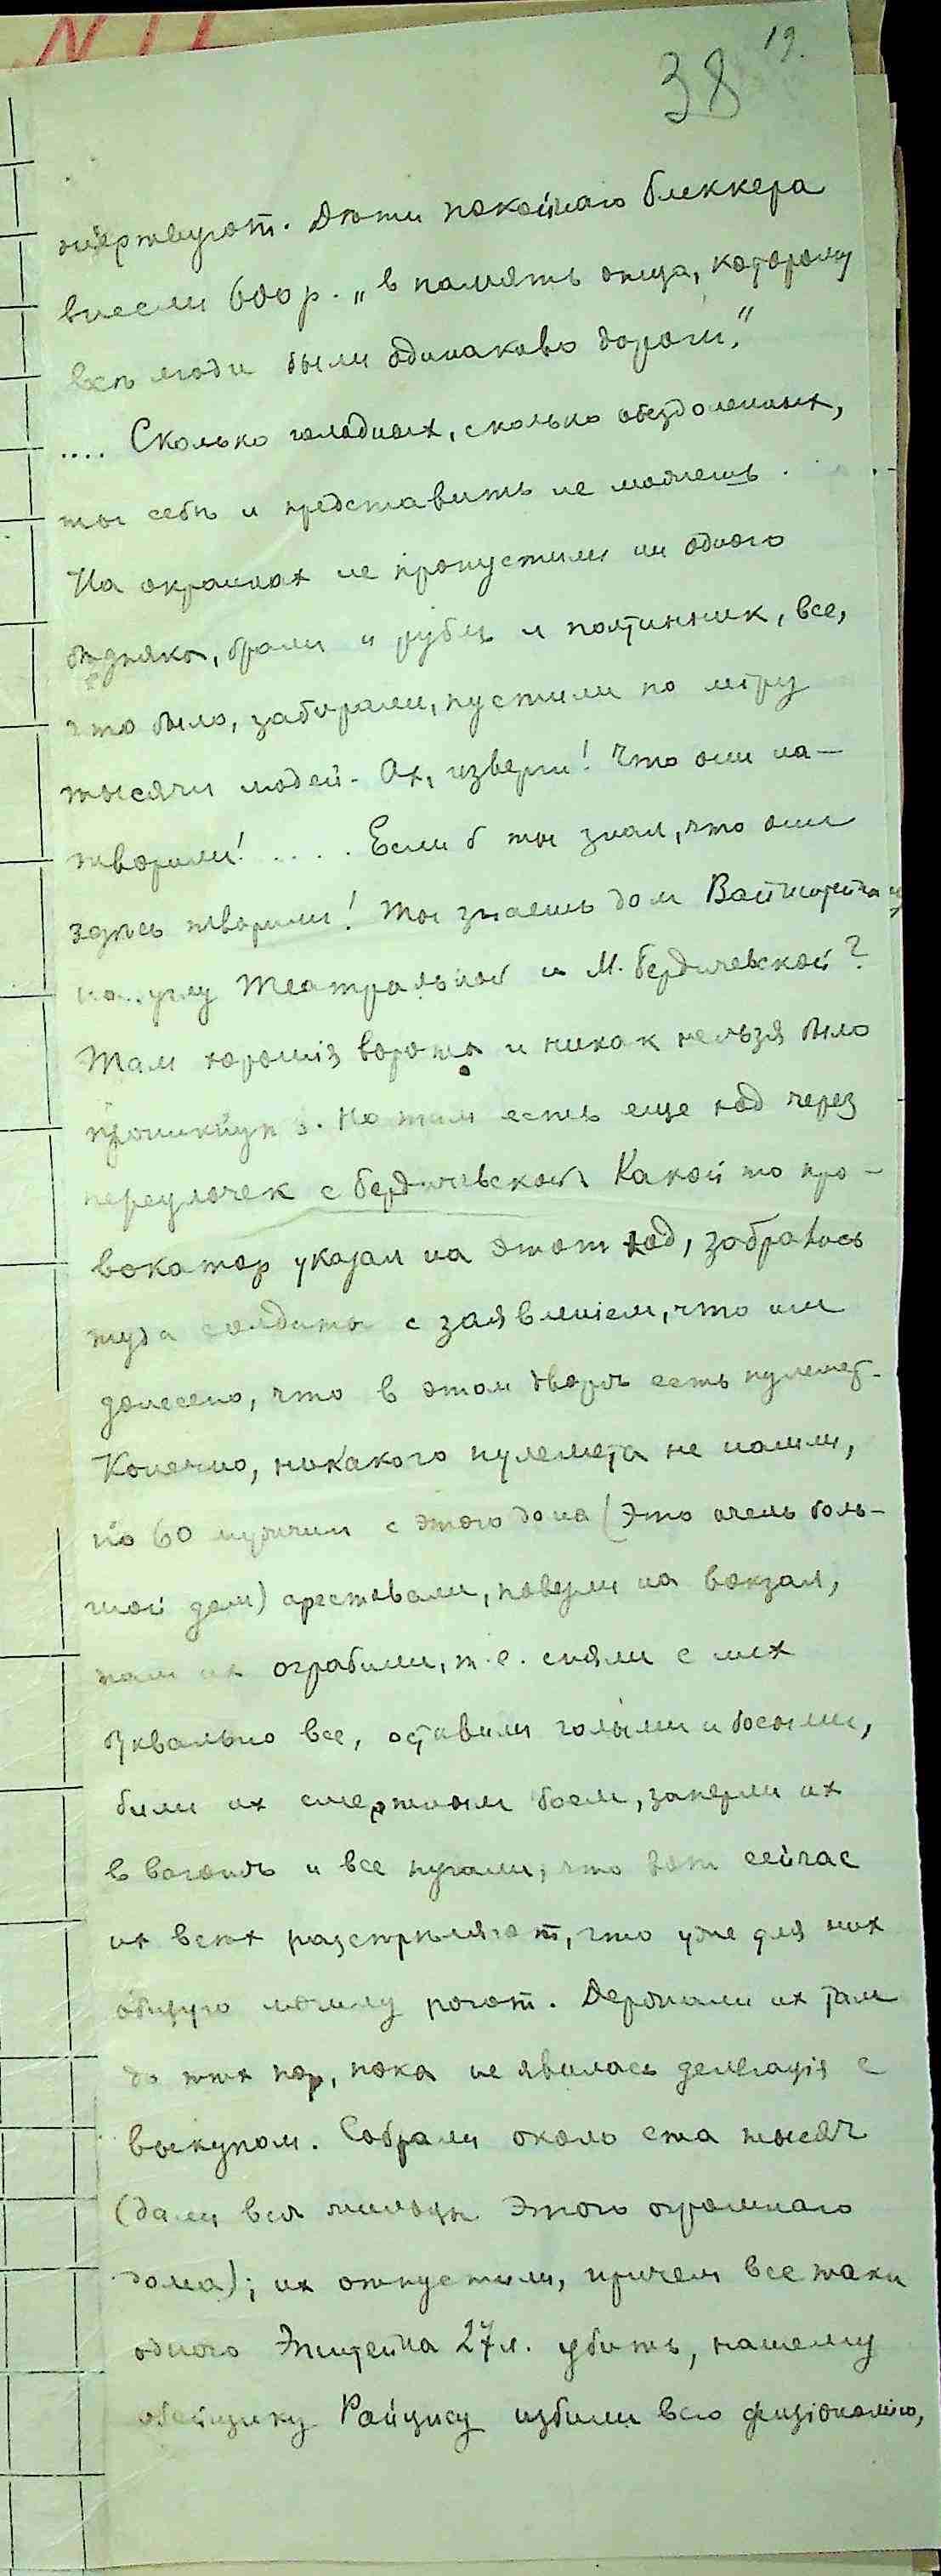 N 11
38 19.
жертвуют. Дѣти покойнаго Блеккера
внесли 600 р. „в память отца, которому
всѣ люди были одинаково дороги."
.... Сколько голодных, сколько обездоленных,
ты себѣ и представить не можешь.
На окраинах не пропустили ни одного
бѣдняка, брали и рубль и полтинник, все,
что было, забирали, пустили по міру
тысячи людей. Ах, изверги! Что они на-
творили! .... Если б ты знал, что они
здѣсь творили! Ты знаешь дом Вайнштейна
на углу Театральной и М. Бердичевской?
Там хорошія ворота и никак нельзя было
проникнуть. Но там есть еще ход через
переулочек с Бердичевской. Какой то про-
вокатор указал на этот ход, забрались
туда солдаты с заявленіем, что им
донесено, что в этом дворѣ есть пулемет.
Конечно, никакого пулемета не нашли,
но 60 мужчин с этого дома (это очень боль-
шой дом) арестовали, повели на вокзал,
там их ограбили, т.е. сняли с них
буквально все, оставили голыми и босыми,
били их смертным боем, заперли их
в вагонѣ и все пугали, что вот сейчас
их всѣх разстрѣляют, что уже для них
общую могилу роют. Держали их там
до тѣх пор, пока не явилась делегація с
выкупом. Собрали около ста тысяч
(дали всѣ жильцы этого огромнаго
дома); их отпустили, причем все таки
одного Эпштейна 27 л. убить, нашему
обойщику Райцису избили всю физіономію,